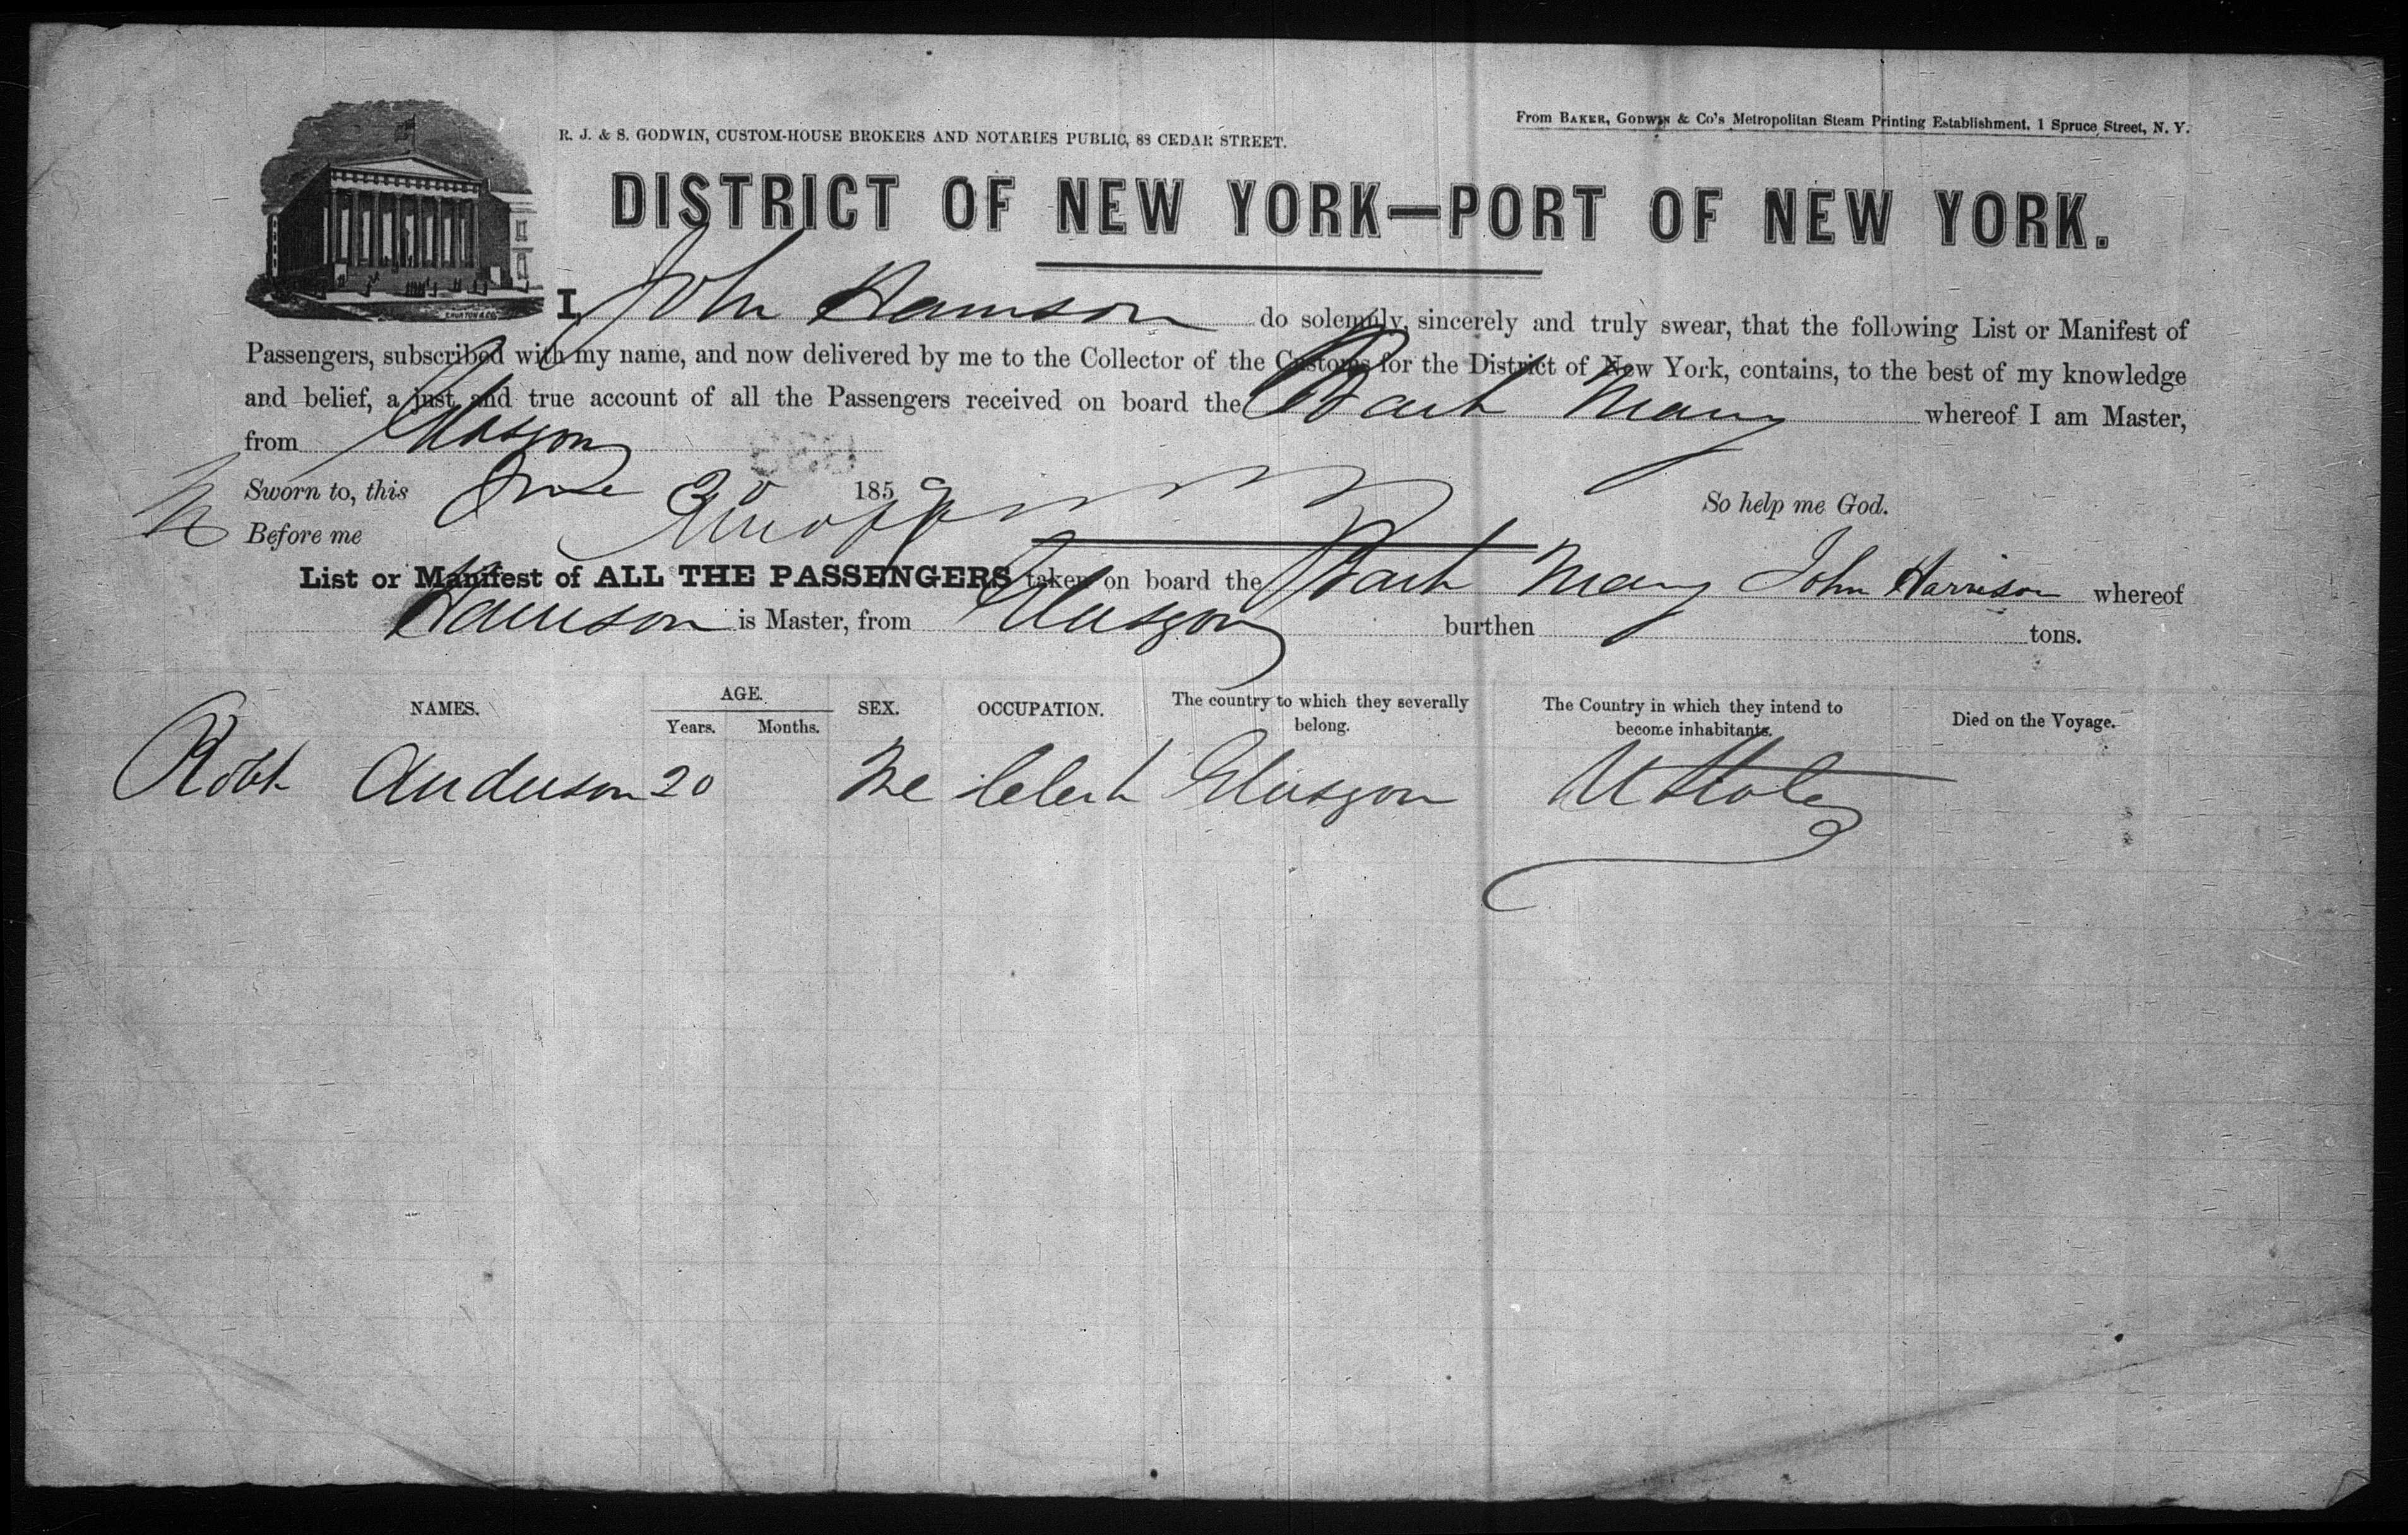 R. J. & S. GODWIN, CUSTOM-HOUSE BROKERS AND NOTARIES PUBLIC, 88 CEDAR STREET.
From BAKER, GODWIN & Co's Metropolitan Steam Printing Establishment, 1 Spruce Street, N. Y.
DISTRICT OF NEW YORK—PORT OF NEW YORK.
I, John Harrison do solemnly, sincerely and truly swear, that the following List or Manifest of
Passengers, subscribed with my name, and now delivered by me to the Collector of the Customs for the District of New York, contains, to the best of my knowledge
and belief, a just and true account of all the Passengers received on board the Bark Mary whereof I am Master,
from Glasgow
Sworn to, this June 20 1859
So help me God.
Before me
List or Manifest of ALL THE PASSENGERS taken on board the Bark Mary John Harrison whereof
Harrison is Master, from Glasgow burthen tons.
NAMES. AGE. Years. Months. SEX. OCCUPATION. The country to which they severally belong. The Country in which they intend to become inhabitants. Died on the Voyage.
Robt Anderson 20 Me Clerk Glasgow U States